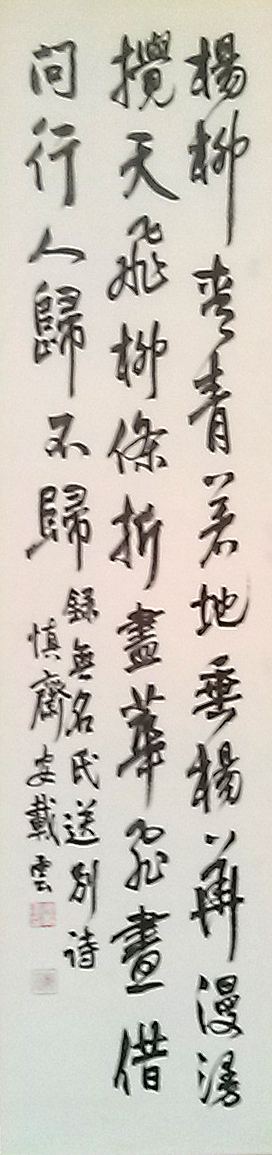 楊柳青青著地垂楊華漫漫
攪天飛柳條折盡華飛盡借
問行人歸不歸
錄無名氏送別詩
慎齋安載雲